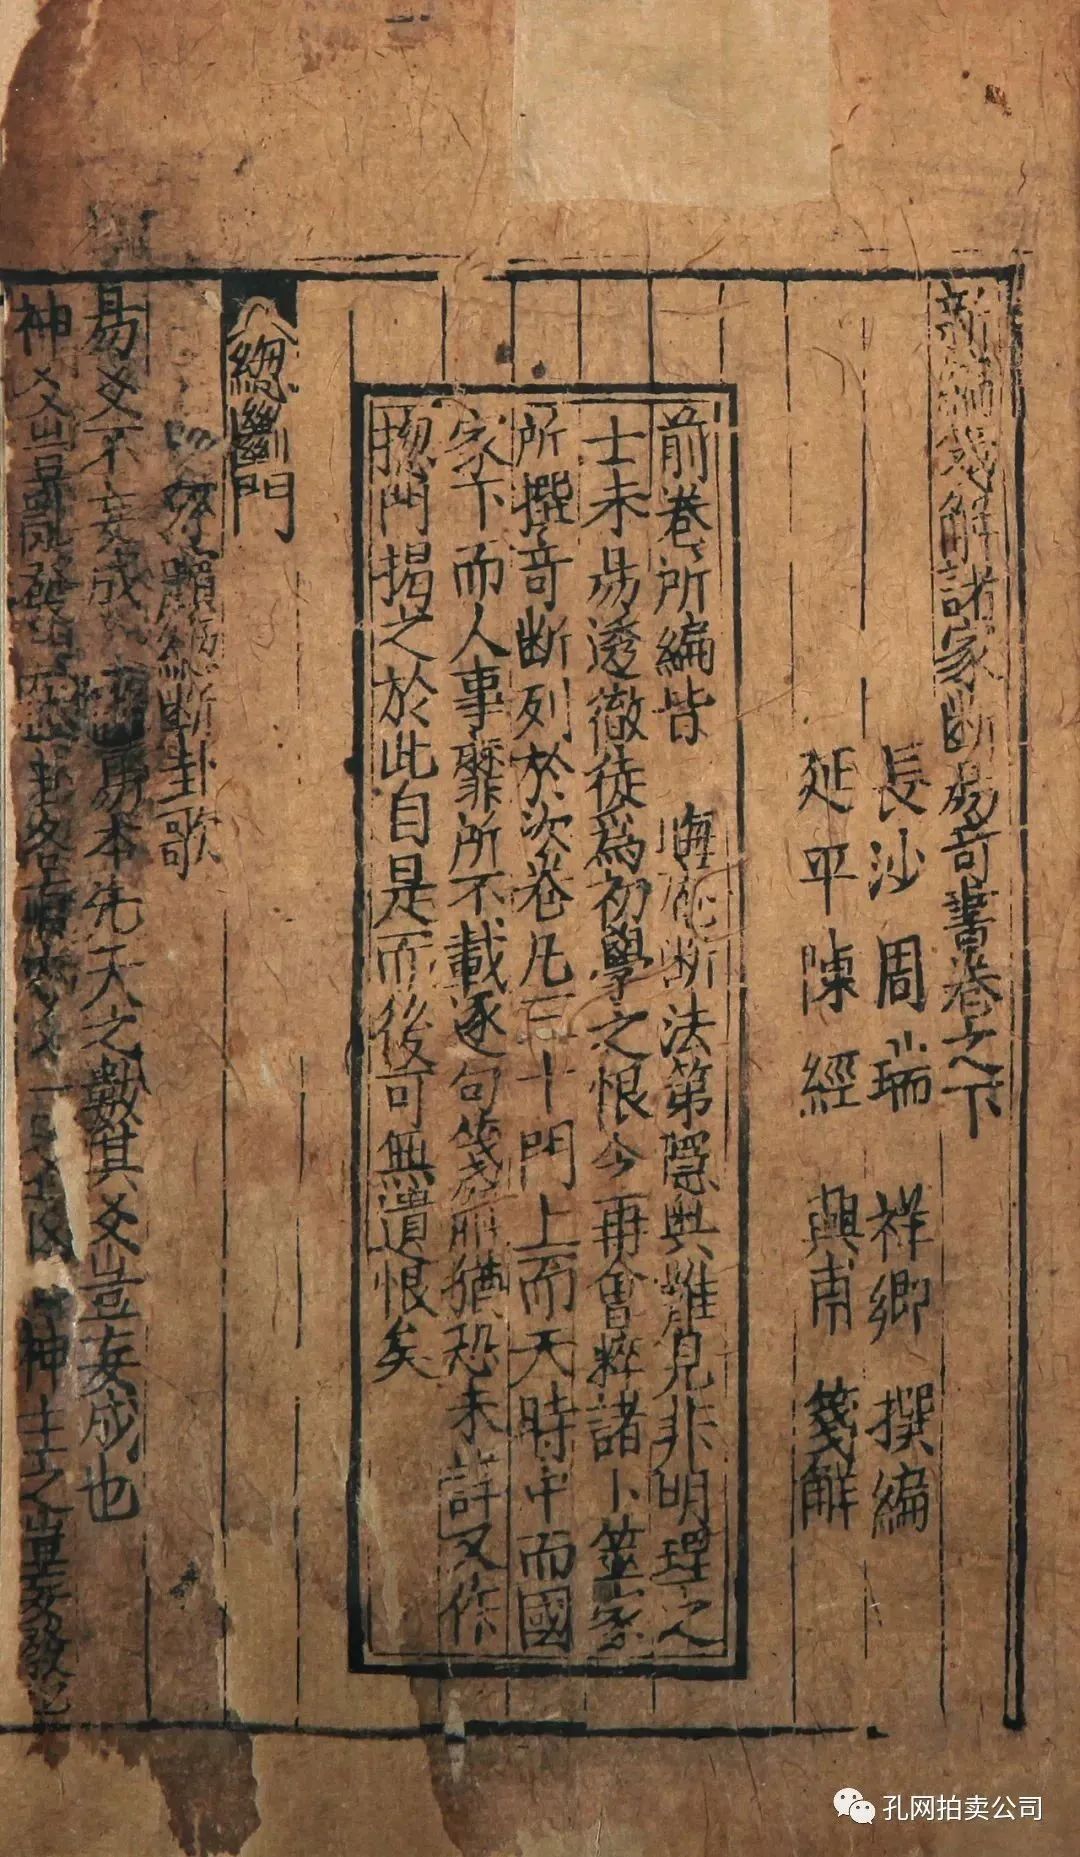 新編箋解諸家斷易奇書卷之下
長沙周瑞 祥卿 撰編
延平陳經 興甫 箋解
前卷所編皆 晦庵断法第隱奧難見非明理之
士未易透徹徒爲初學之恨今再會粹諸卜筮家
所撰竒断列於次卷凡三十門上而天時中而國
家下而人事靡所不載逐句箋解猶恐未詳又作
揔門揭之於此自是而後可無遺恨矣
總斷門
断卦歌
易爻不妄成 易本先天之數其爻豈妄成也
神爻豈亂發 神
孔网拍卖公司